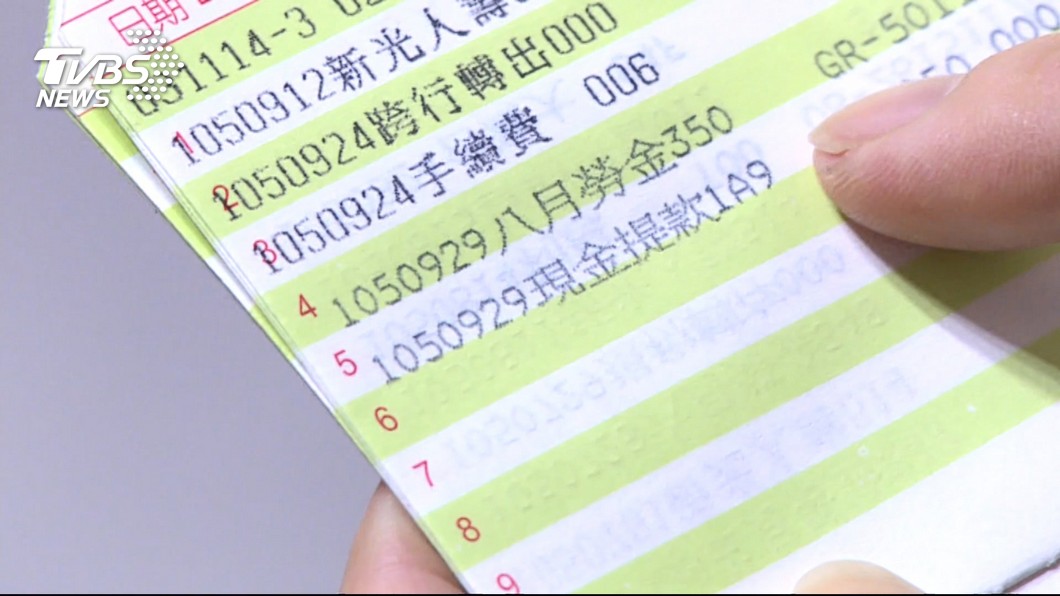 TVBS
NEWS
日期
051114-3
1 1050912新光人壽
GR-501
2 1050924跨行轉出000
3 1050924手續費 006
4 1050929八月勞金350
5 1050929現金提款1A9
6
7
8
9